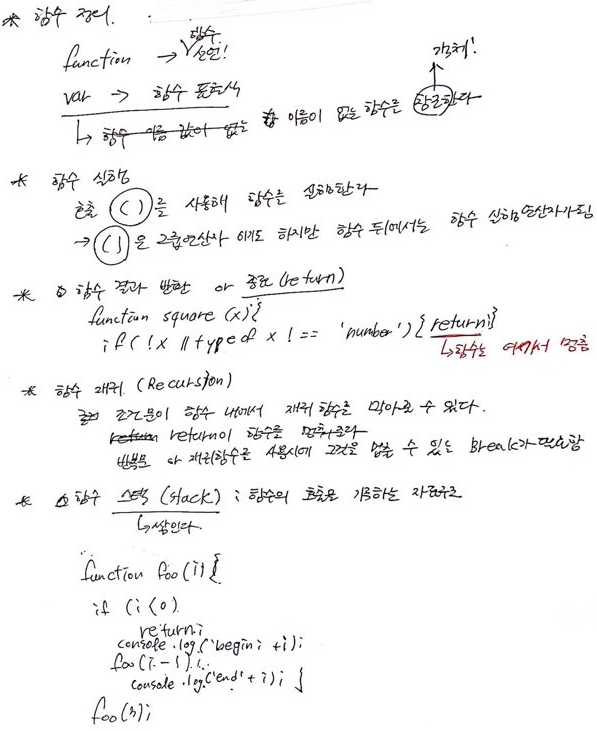 * 함수 정리.
function → 함수 선언!
var → 함수 표현식
객체!
↳ 함수 이름 값이 없는 이름이 없는 함수를 할당한다
* 함수 실행
호출 ( )를 사용해 함수를 실행한다
→ ( )은 그룹연산자 이기도 하지만 함수 뒤에서는 함수 실행 연산자가 됨
* 함수 결과 반환 or 종료(return)
function square (x) {
if ( !x || typeof x !== 'number') { return;}
↳함수는 여기서 멈춤
* 함수 재귀 (Recursion)
조건문이 함수 내에서 재귀 함수를 막아줄 수 있다.
return return이 함수를 멈춰준다
반복문 or 재귀함수를 사용시에 그것을 멈출 수 있는 Break가 필요함
* 함수 스택 (stack) ; 함수의 호출을 기록하는 자료구조
↳쌓인다.
function foo (i) {
if (i < 0)
return;
console.log ('begin; +i);
foo (i - 1);
console.log ('end' + i); }
foo(3);